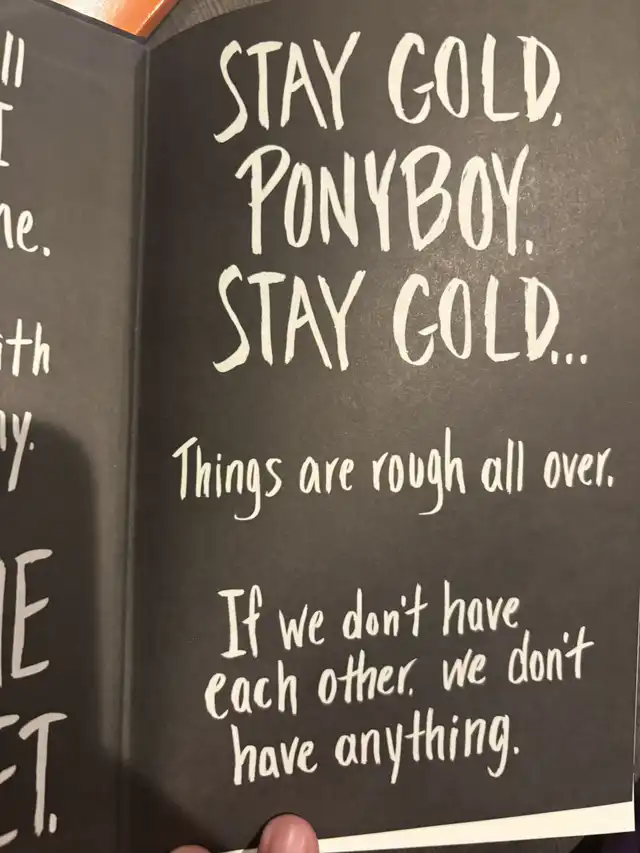 ll
I
ne.
ith
ny.
ME
ET.
STAY GOLD,
PONYBOY.
STAY GOLD...
Things are rough all over.
If we don't have
each other, we don't
have anything.